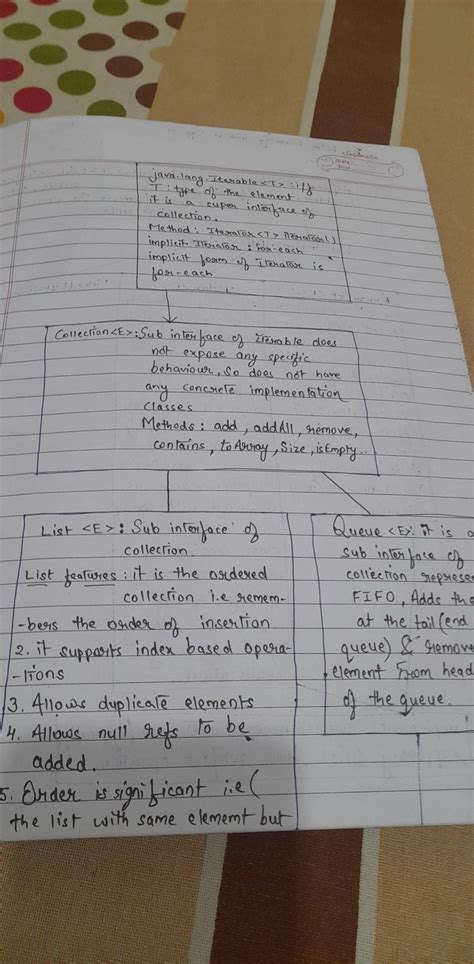 java.lang.Iterable<T> : i/f
T : type of the element.
it is a super interface of
collection.
Method : Iterator<T> Iterator()
implicit Iterator : for-each
implicit form of Iterator is
for-each
Collection<E>: Sub interface of Iterable does
not expose any specific
behaviour, So does not have
any concrete implementation
classes
Methods : add, addAll, remove,
contains, toArray, Size, isEmpty..
List <E> : Sub interface of
collection.
List features : it is the ordered
collection i.e remem-
-bers the order of insertion
2. it supports index based opera-
-tions
3. Allows duplicate elements
4. Allows null refs to be
added.
5. Order is significant i.e (
the list with same element but
Queue <E>: it is a
sub interface of
collection represe
FIFO, Adds the
at the tail (end
queue) & remove
element from head
of the queue.